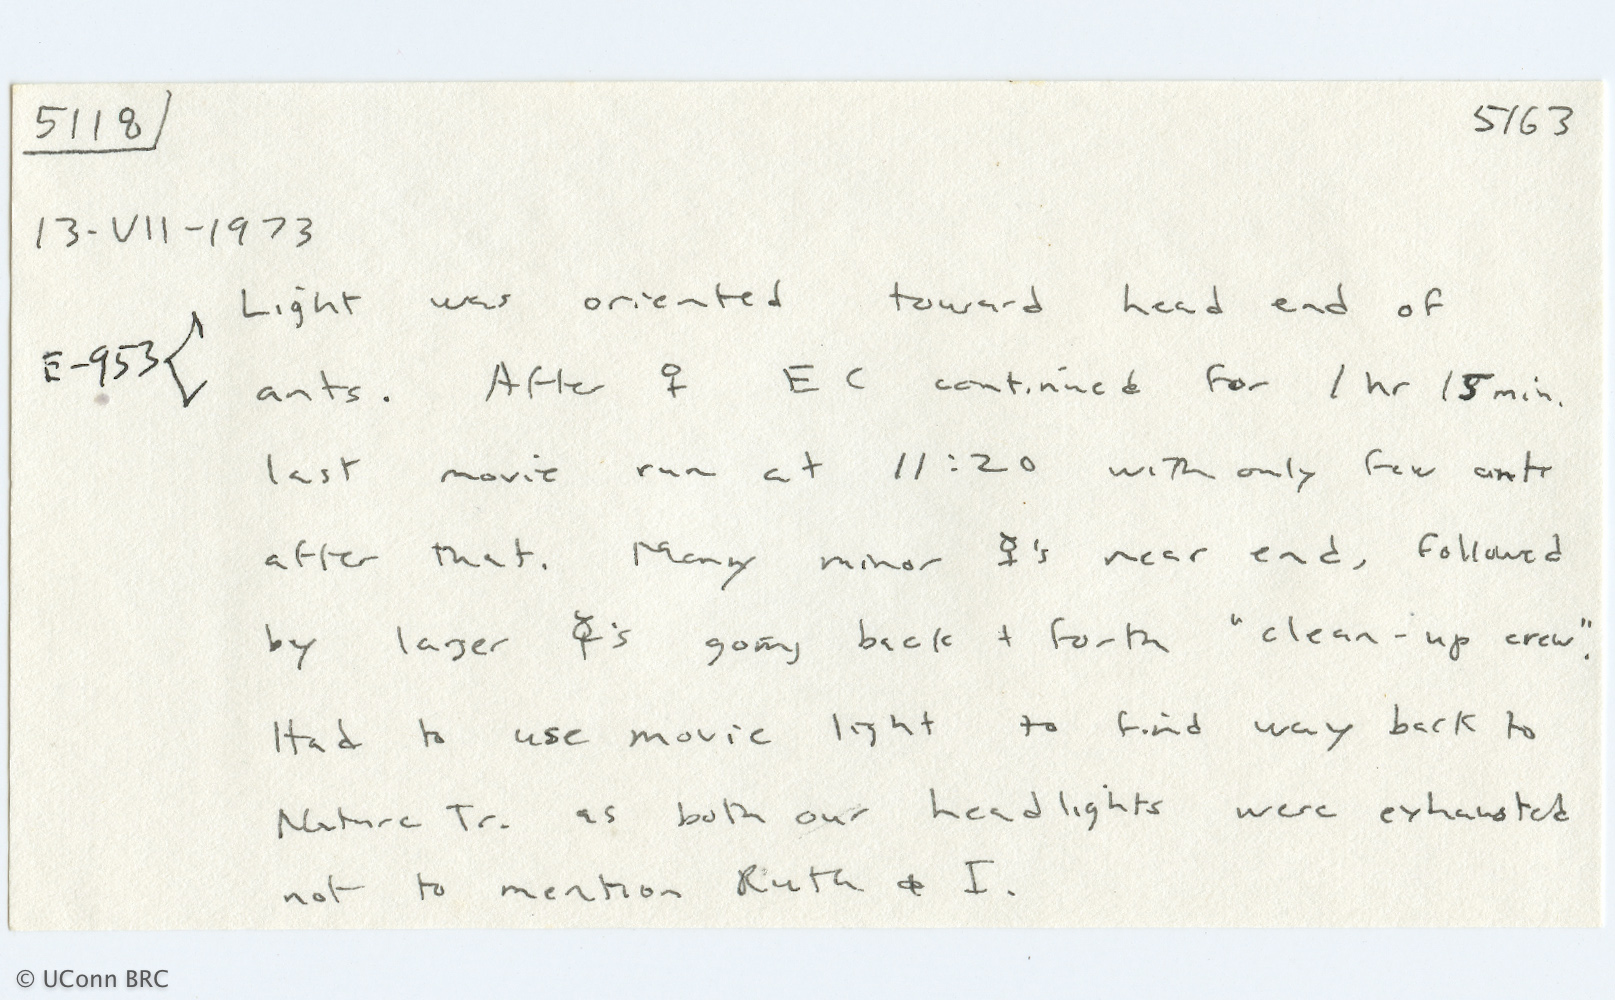 5118 5163
13-VII-1973
Light was oriented toward head end of
E-953 ants. After ♀ EC continued for 1 hr 15 min.
last movie run at 11:20 with only few ants
after that. Many minor ☿'s near end, followed
by larger ☿'s going back + forth "clean-up crew".
Had to use movie light to find way back to
Nature Tr. as both our headlights were exhausted
not to mention Ruth & I.
© UConn BRC